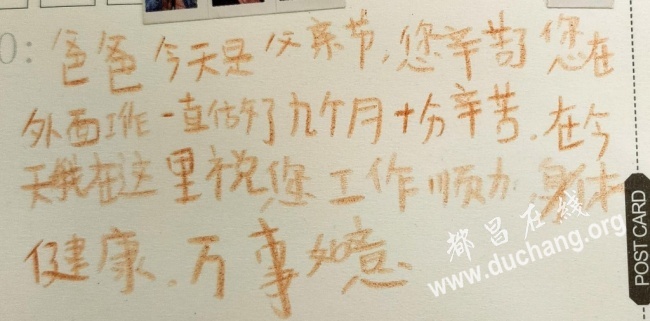 O:爸爸今天是父亲节,您辛苦了您在
外面工作一直做了九个月十分辛苦.在今
天我在这里祝您工作顺力身体
健康.万事如意.
都昌在线
www.duchang.org
POST CARD